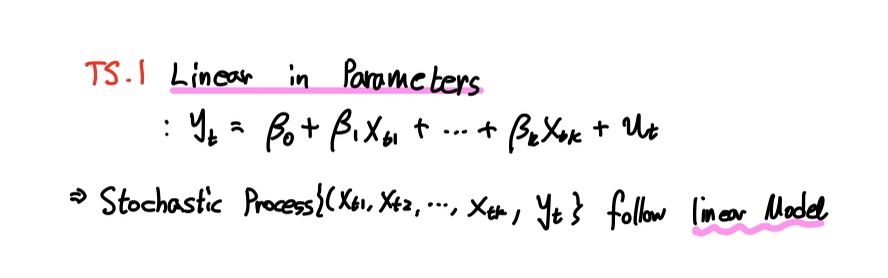 TS.1 Linear in Parameters
: yₜ = β₀ + β₁xₜ₁ + ... + βₖxₜₖ + uₜ
⇒ Stochastic Process {(xₜ₁, xₜ₂, ..., xₜₖ, yₜ} follow linear Model